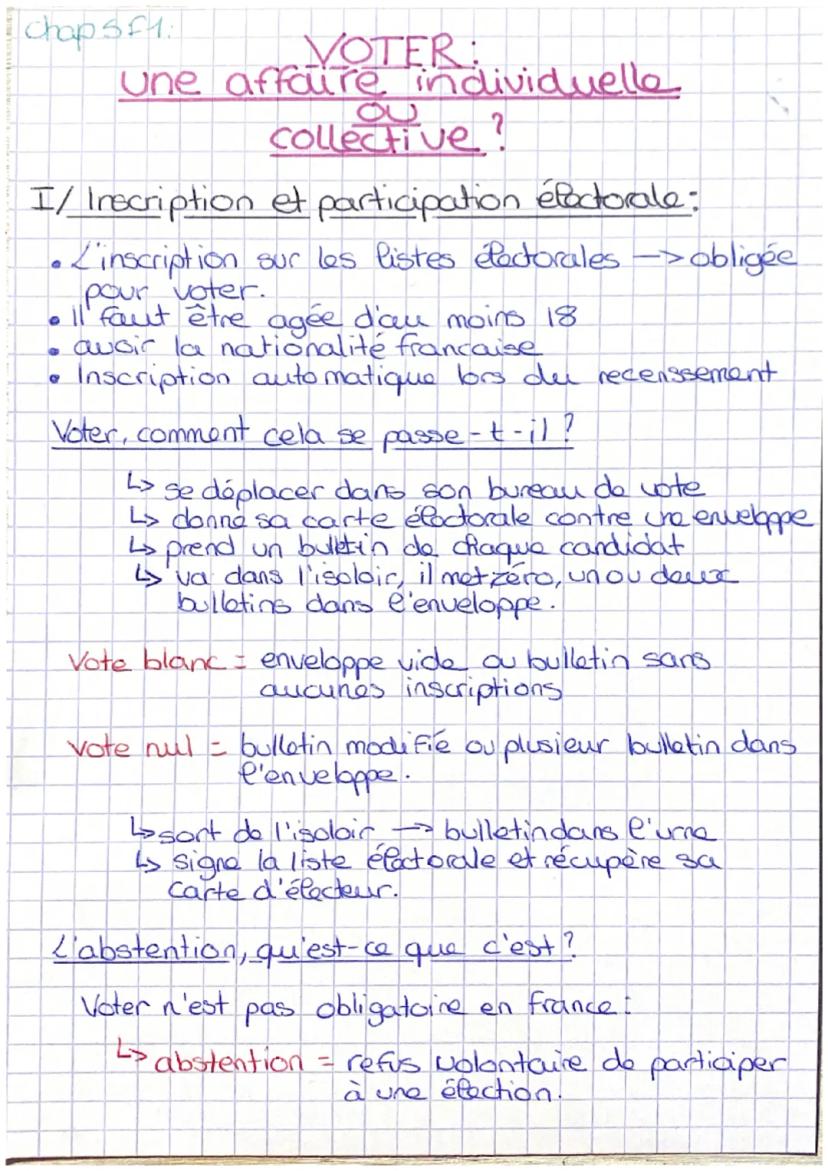 Chap 5 f1:
VOTER:
une affaire individuelle
ou
collective ?
I/ Inscription et participation électorale:
• L'inscription sur les listes électorales -> obligée
pour voter.
• Il faut être agée d'au moins 18
• avoir la nationalité francaise
• Inscription automatique lors du recenssement
Voter, comment cela se passe-t-il ?
↳ se déplacer dans son bureau de vote
↳ donne sa carte électorale contre une enveloppe
↳ prend un bulletin de chaque candidat
↳ va dans l'isoloir, il met zéro, un ou deux
bulletins dans l'enveloppe.
Vote blanc = enveloppe vide ou bulletin sans
aucunes inscriptions
Vote nul = bulletin modifié ou plusieur bulletin dans
l'enveloppe.
↳ sort de l'isoloir -> bulletin dans l'urne
↳ signe la liste électorale et récupère sa
carte d'électeur.
L'abstention, qu'est-ce que c'est ?
Voter n'est pas obligatoire en france :
↳ abstention = refus volontaire de participer
à une élection.